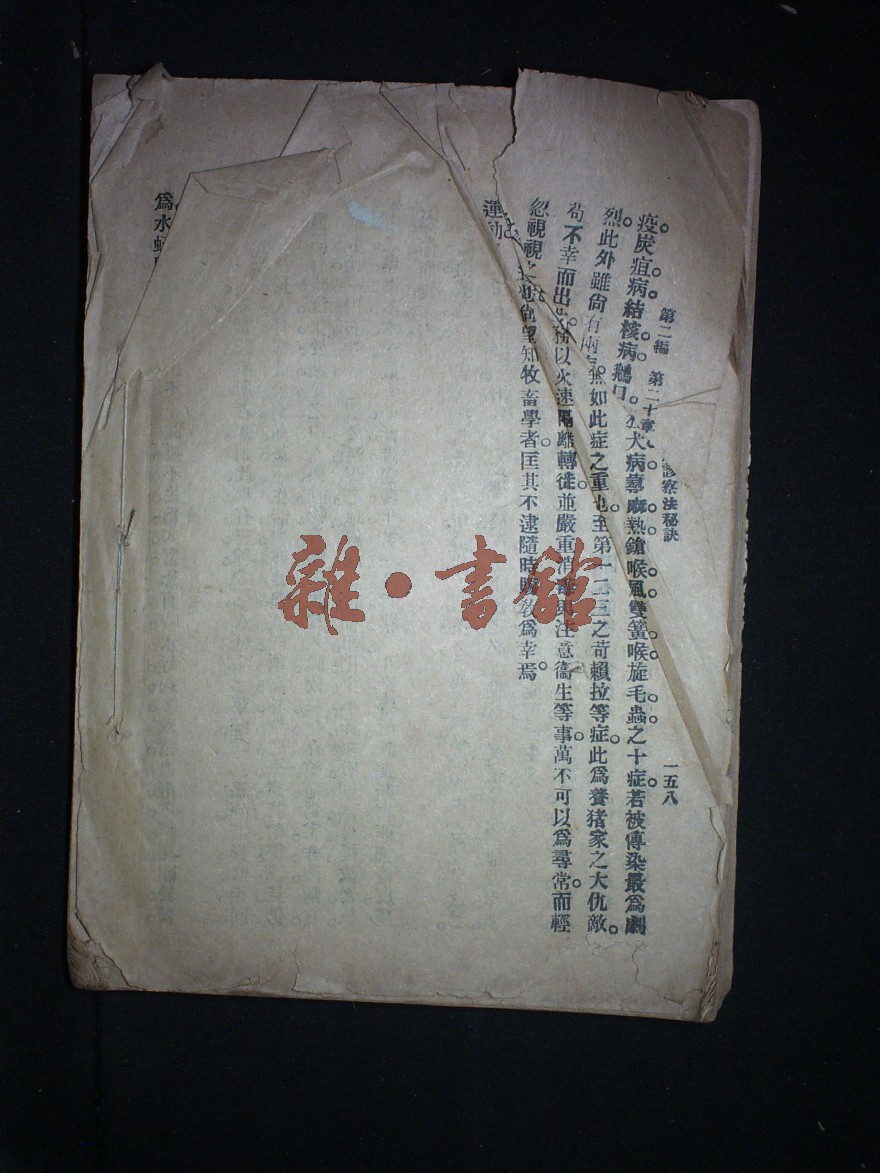 第二編　第二十章　診察法秘訣　一五八
疫。炭疽病。結核病。鵝口。犬病。蕁麻熱。鎗喉風。雙簧喉。旋毛蟲。之十症。若被傳染最爲劇
烈。此外雖尙有兩。無如此症之重也。至第一二三之苛賴拉等症。此爲養猪家之大仇敵。
苟不幸而出。務以火速隔離轉徙。並嚴重消毒與注意衞生等事。萬不可以爲尋常。而輕
忽視視之也。尙望知牧畜學者。匡其不逮。隨時賜敎爲幸焉。
運動
爲水
雜·書館